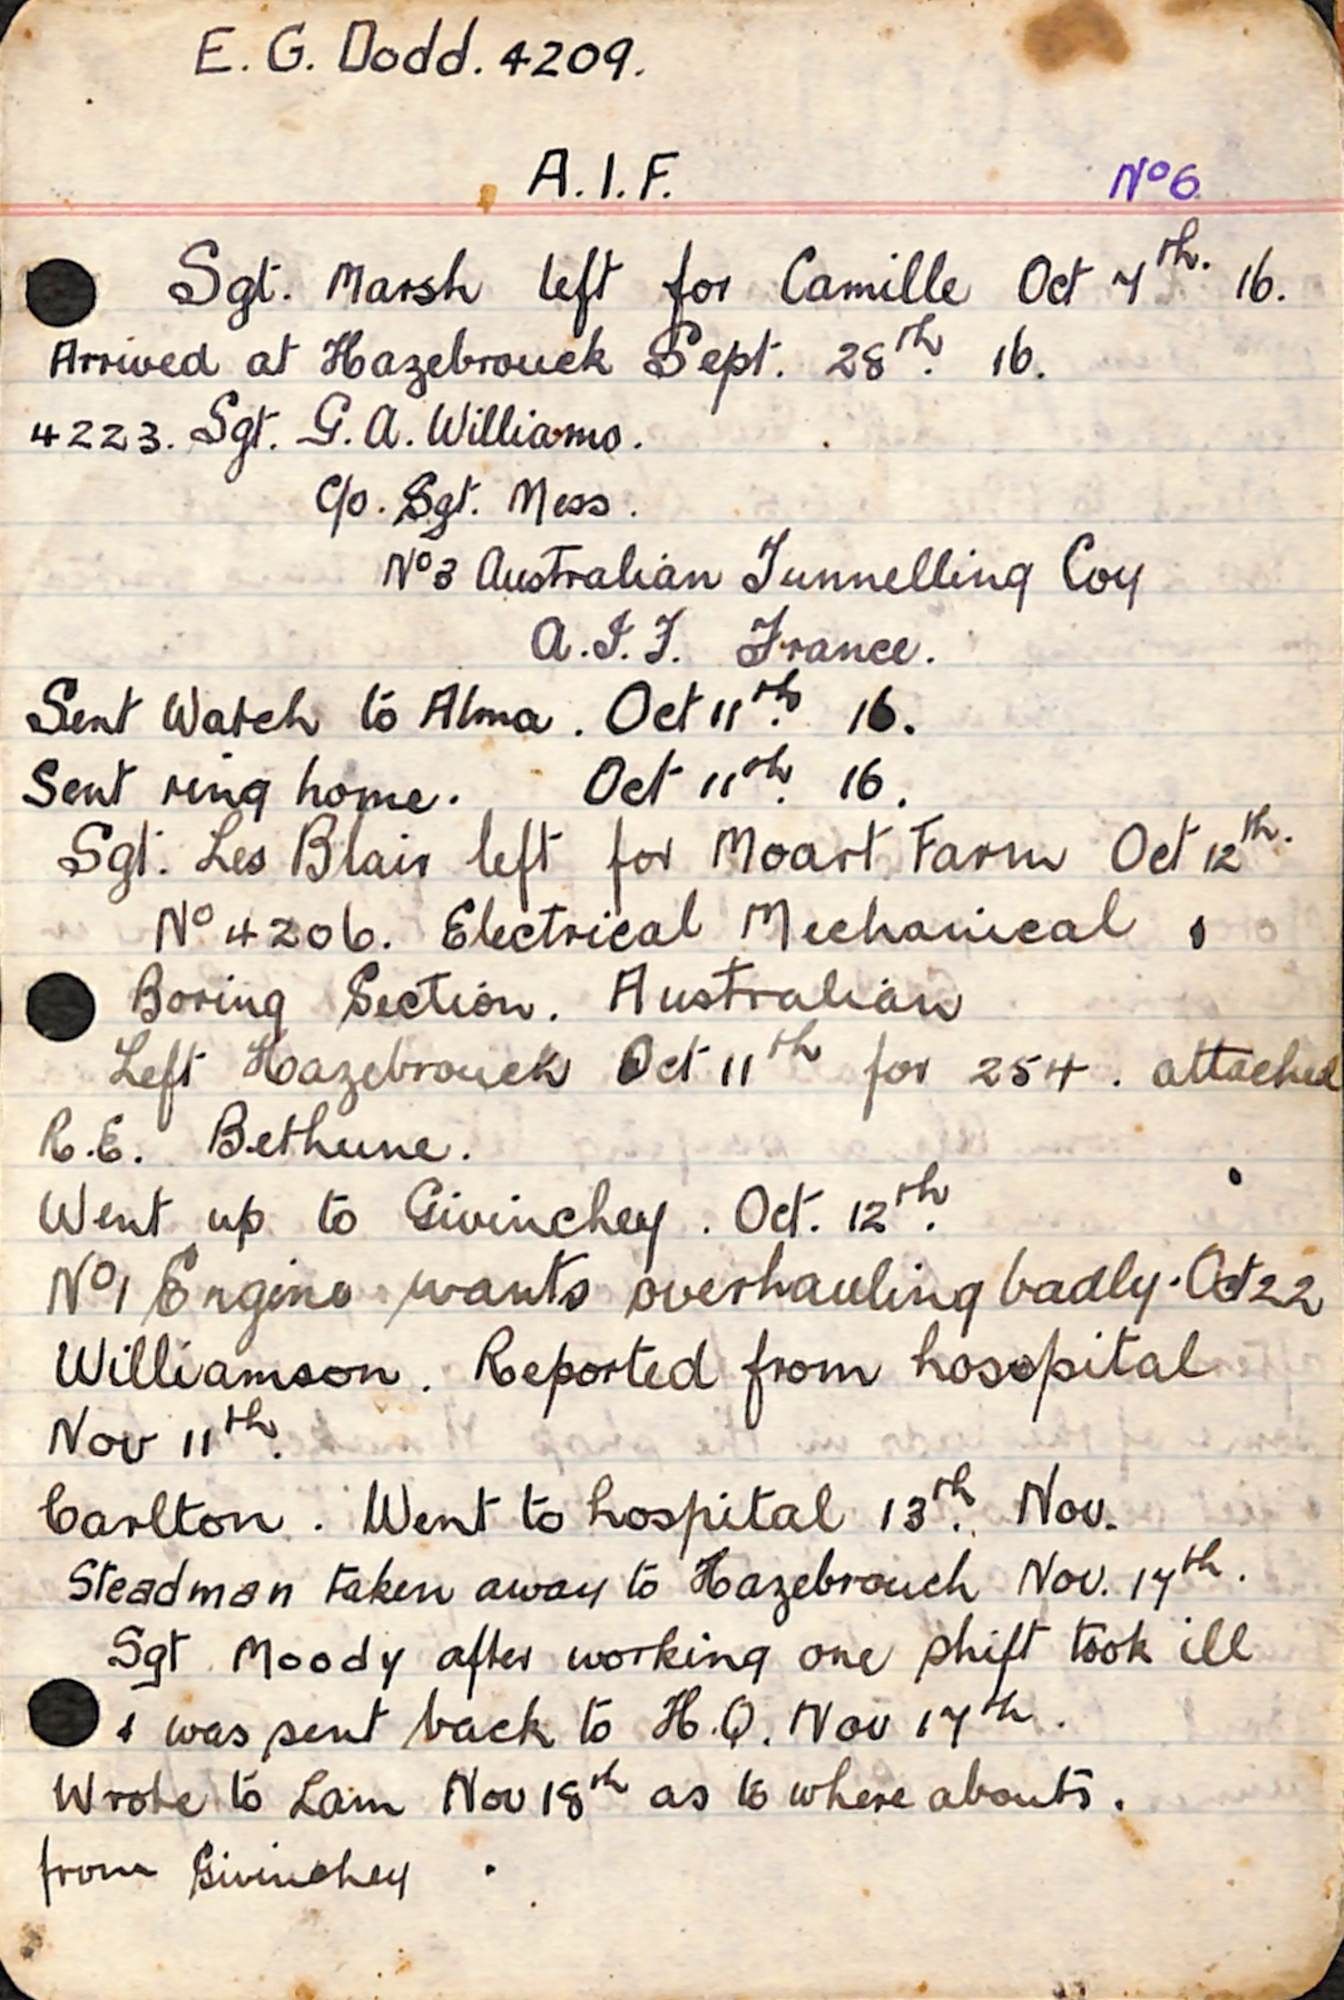 E. G. Dodd. 4209.
A.I.F. No 6
Sgt. Marsh left for Camille Oct 7th. 16.
Arrived at Hazebrouck Sept. 28th. 16.
4223. Sgt. G. A. Williams.
c/o. Sgt. Mess.
No 3 Australian Tunnelling Coy
A.I.F. France.
Sent Watch to Alma. Oct 11th. 16.
Sent ring home. Oct 11th. 16.
Sgt. Les Blair left for Moart Farm Oct 12th.
No 4206. Electrical Mechanical &
Boring Section. Australian
Left Hazebrouck Oct 11th for 254. attached
R.E. Bethune.
Went up to Givinchey. Oct. 12th.
No 1 Engine wants overhauling badly. Oct 22
Williamson. Reported from hosspital
Nov 11th.
Carlton. Went to hospital 13th. Nov.
Steadman taken away to Hazebrouch Nov. 17th.
Sgt Moody after working one shift took ill
& was sent back to H.Q. Nov 17th.
Wrote to Lam Nov 18th as to where abouts.
from Givinchey